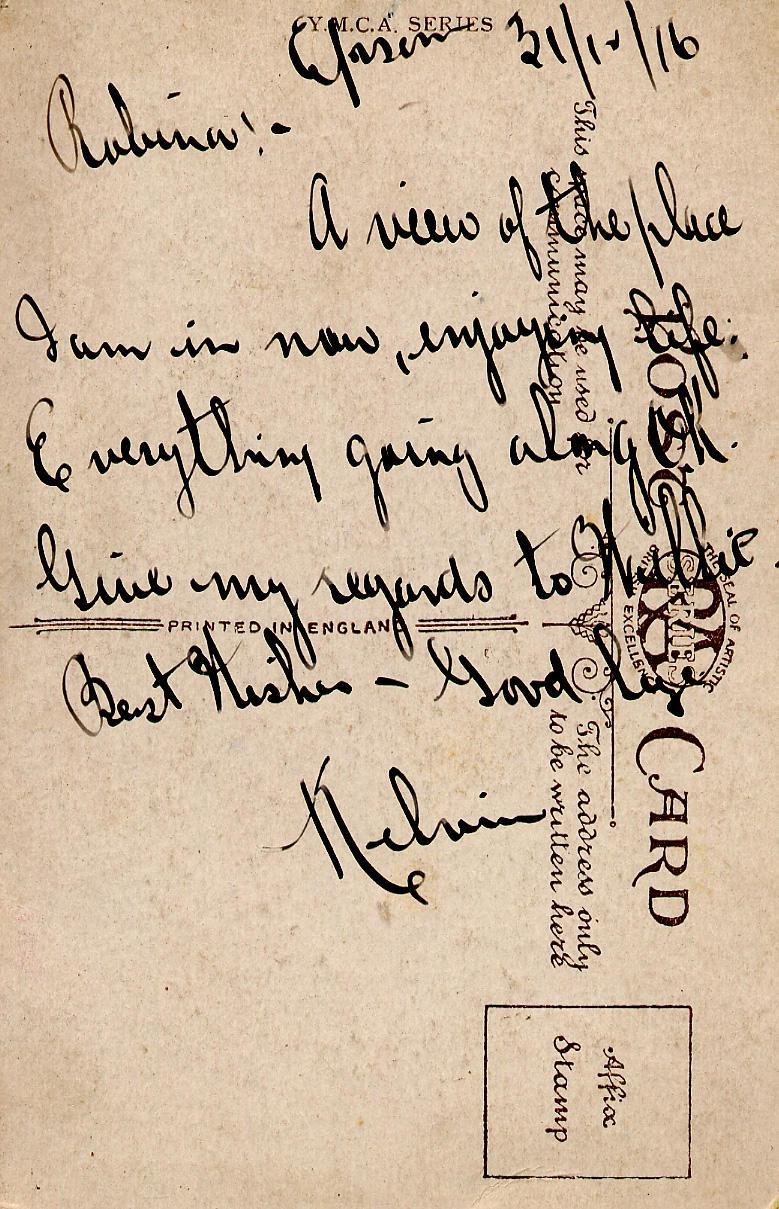 Y.M.C.A. SERIES
Epsom 31/12/16
Robina! -
A view of the place
I am in now, enjoying life.
Everything going along Ok.
Give my regards to Willie.
Best Wishes - Good Luck
Kelvin
PRINTED IN ENGLAND
POST CARD
This space may be used for
communication
The address only
to be written here
THE SEAL OF ARTISTIC
EXCELLENCE
Affix
Stamp